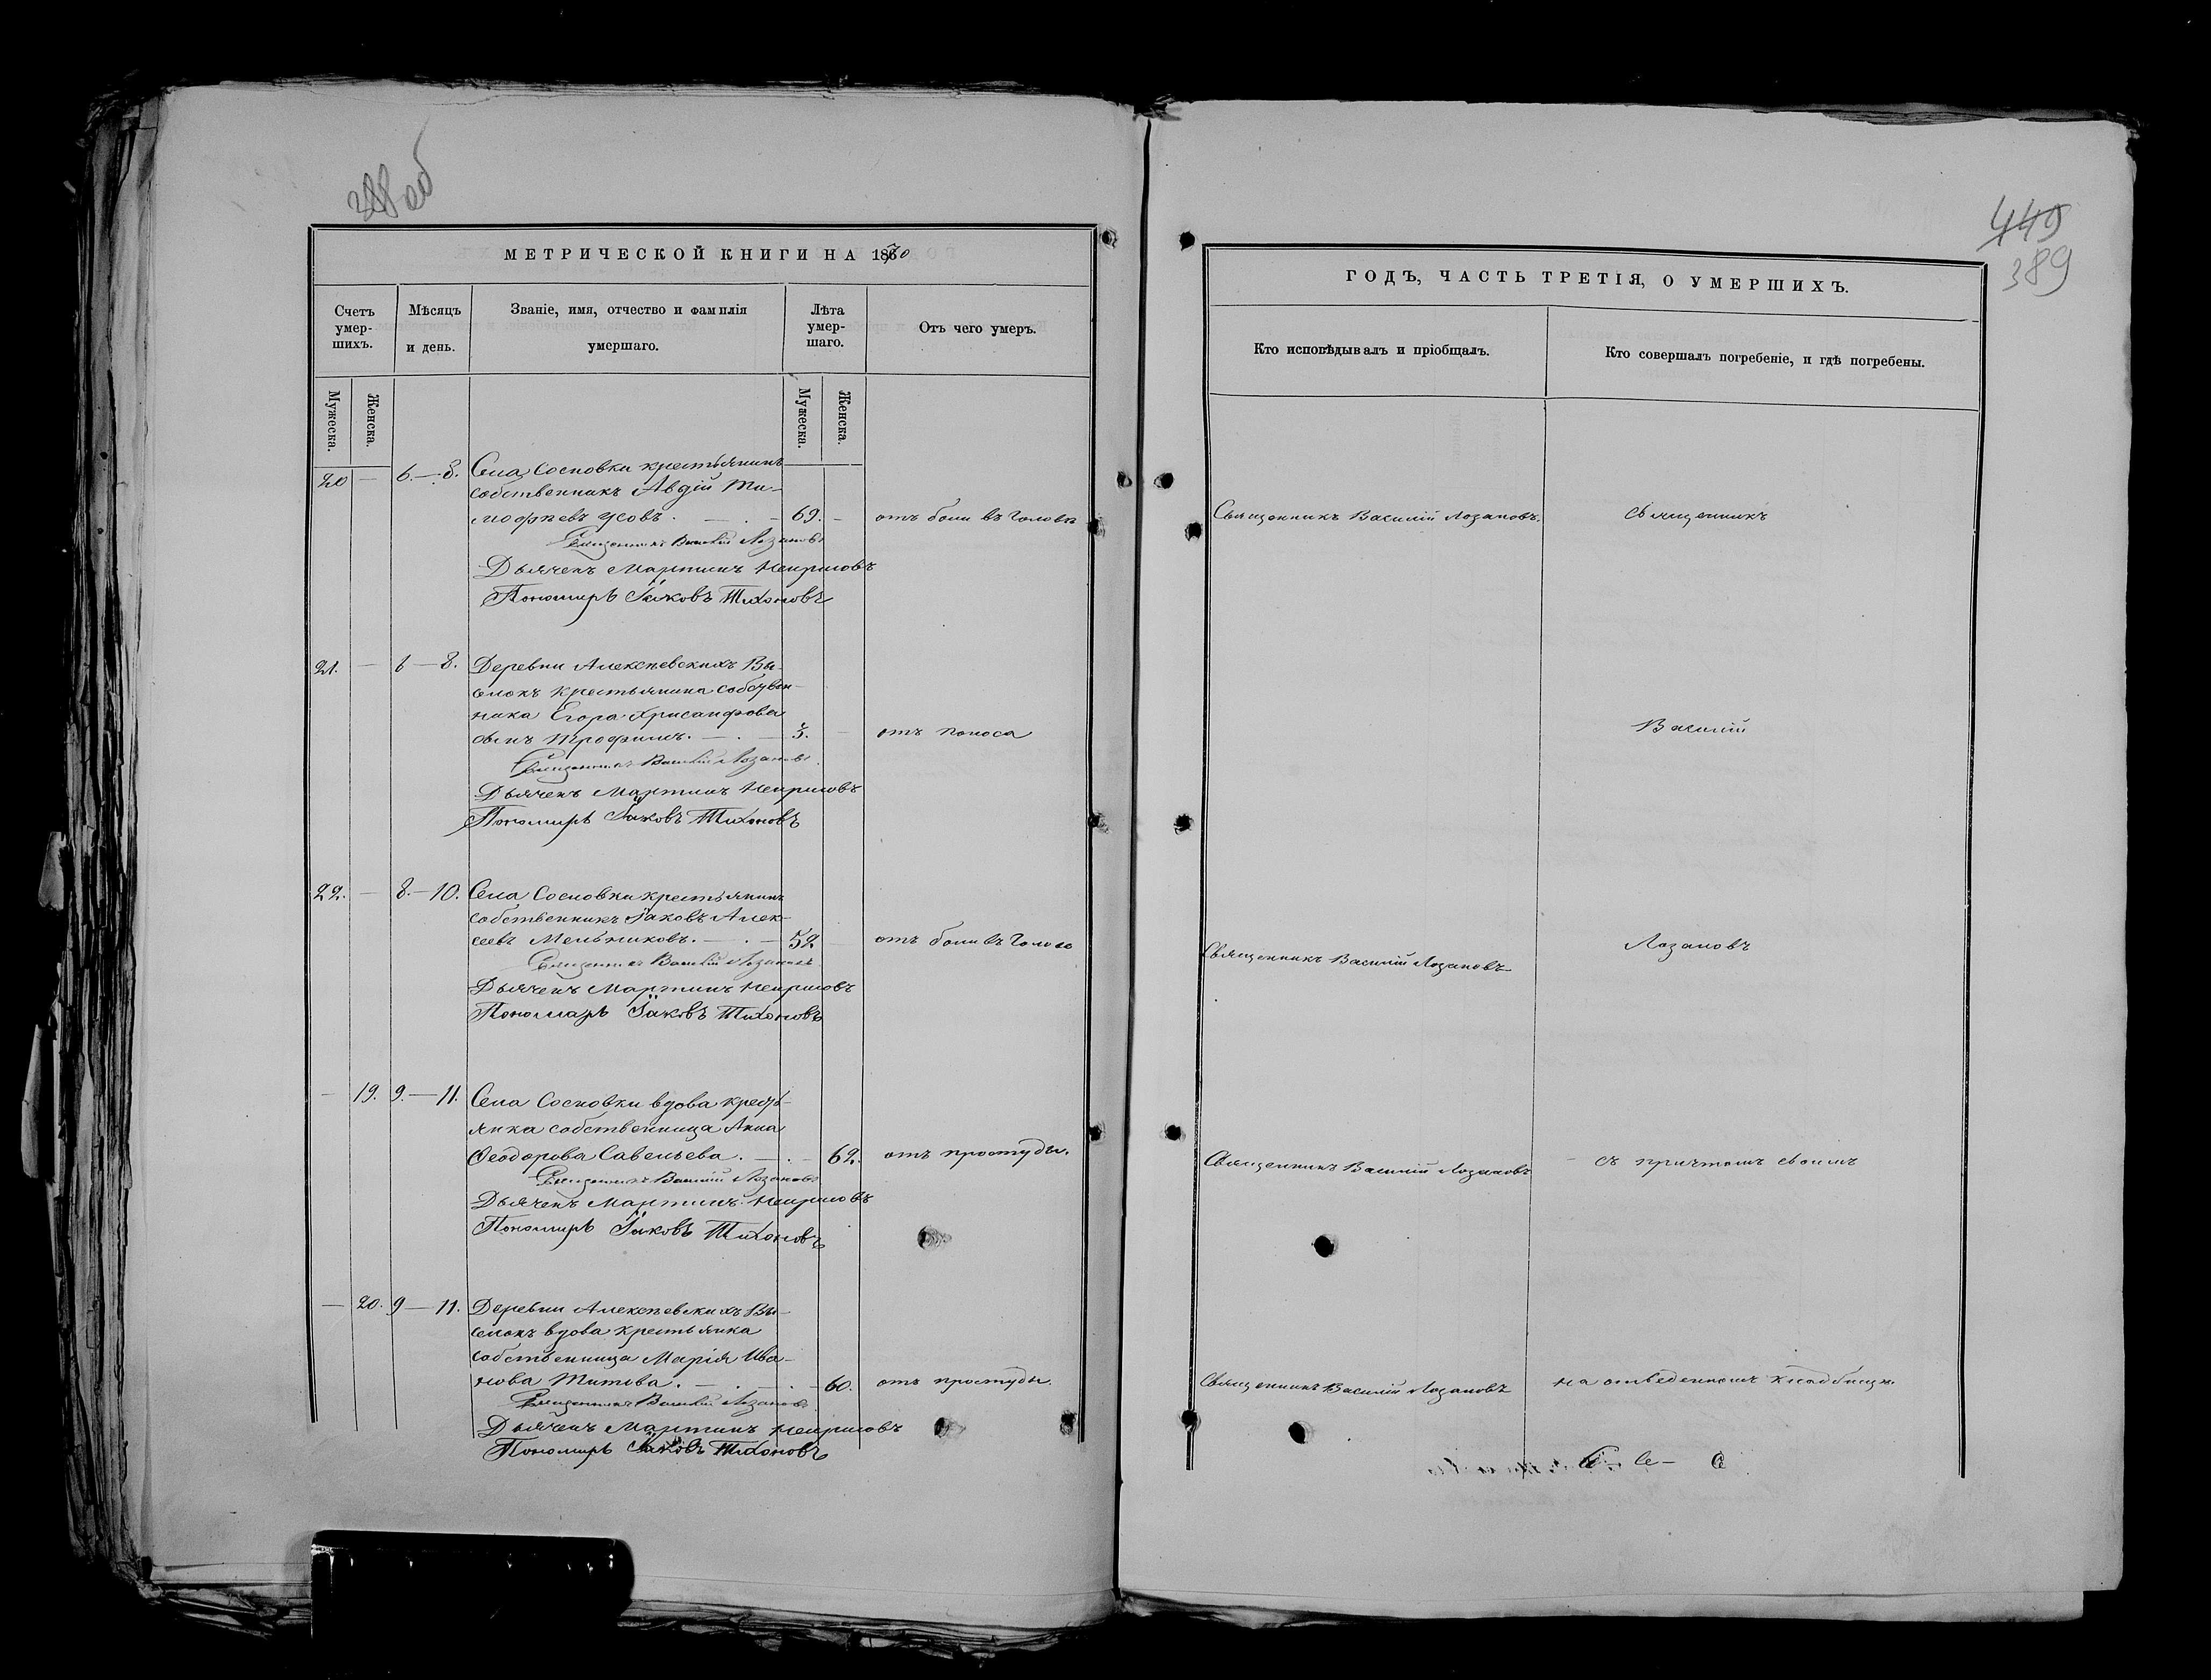 388 об
МЕТРИЧЕСКОЙ КНИГИ НА 1870
Счетъ умер-шихъ.
Мѣсяцъ и день.
Званіе, имя, отчество и фамилія умершаго.
Лѣта умер-шаго.
Отъ чего умеръ.
Мужеска.
Женска.
Мужеска.
Женска.
20 — 6.—8. Села Сосновки крестьянинъ
собственникъ Авдій Ти-
мофѣевъ Усовъ. — . — 69. — отъ боли въ головѣ
Священникъ Василій Лозановъ
Дьячекъ Мартинъ
Пономарь Іаковъ Тихоновъ
21. — 6—8. Деревни Алексѣевскихъ Вы-
селокъ крестьянина собствен-
ника Егора Хрисанфова
сынъ Трофимъ. — . — 3. — отъ поноса
Священникъ Василій Лозановъ
Дьячекъ Мартинъ
Пономарь Іаковъ Тихоновъ
22. — 8.—10. Села Сосновки крестьянинъ
собственникъ Іаковъ Алек-
сеевъ Мельниковъ. — . — 52 — отъ боли въ головѣ
Священникъ Василій Лозановъ
Дьячекъ Мартинъ
Пономарь Іаковъ Тихоновъ
— 19. 9.—11. Села Сосновки вдова кресть-
янка собственница Анна
Ѳеодорова Савельева. — . — 62. отъ простуды.
Священникъ Василій Лозановъ
Дьячекъ Мартинъ
Пономарь Іаковъ Тихоновъ
— 20. 9—11. Деревни Алексѣевскихъ Вы-
селокъ вдова крестьянка
собственница Марія Ива-
нова Титова. — . — . — 60. отъ простуды.
Священникъ Василій Лозановъ
Дьячекъ Мартинъ
Пономарь Іаковъ Тихоновъ
449
389
ГОДЪ, ЧАСТЬ ТРЕТІЯ, О УМЕРШИХЪ.
Кто исповѣдывалъ и пріобщалъ.
Кто совершалъ погребеніе, и гдѣ погребены.
Священникъ Василій Лозановъ. священникъ
Василій
Лозановъ
Священникъ Василій Лозановъ
Священникъ Василій Лозановъ — съ причтомъ своимъ
Священникъ Василій Лозановъ на отведенномъ кладбищѣ.